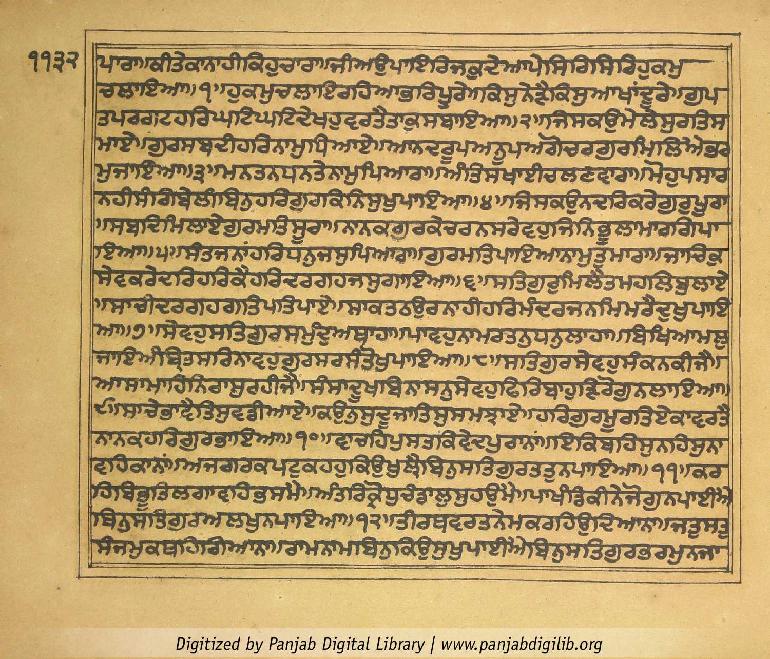 ੧੧੩੨
ਪਾਰਾ॥ਕੀਤੇਕਾਨਾਹੀਕਿਹੁਚਾਰਾ॥ਜੀਅਉਪਾਇਰਿਜਕੁਦੇਆਪੇਸਿਰਿਸਿਰਿਹੁਕਮੁ
ਚਲਾਇਆ॥੧॥ਹੁਕਮੁਚਲਾਇਰਹਿਆਭਰਿਪੂਰੇ॥ਕਿਸੁਨੇੜੈਕਿਸੁਆਖਾਂਦੂਰੇ॥ਗੁਪ
ਤਪਰਗਟਹਰਿਘਟਿਘਟਿਦੇਖਹੁਵਰਤੈਤਾਕੁਸਬਾਇਆ॥੨॥ਜਿਸਕਉਮੇਲੇਸੁਰਤਿਸ
ਮਾਏ॥ਗੁਰਸਬਦੀਹਰਿਨਾਮੁਧਿਆਏ॥ਆਨਦਰੂਪਅਨੂਪਅਗੋਚਰਗੁਰਮਿਲਿਐਭਰ
ਮੁਜਾਇਆ॥੩॥ਮਨਤਨਧਨਤੇਨਾਮੁਪਿਆਰਾ॥ਅੰਤਿਸਖਾਈਚਲਣਵਾਰਾ॥ਮੋਹੁਪਸਾਰ
ਨਹੀਸੰਗਿਬੇਲੀਬਿਨੁਹਰਿਗੁਰਕਿਨਿਸੁਖੁਪਾਇਆ॥੪॥ਜਿਸਕਉਨਦਰਿਕਰੇਗੁਰੁਪੂਰਾ
॥ਸਬਦਿਮਿਲਾਏਗੁਰਮਤਿਸੂਰਾ॥ਨਾਨਕਗੁਰਕੇਚਰਨਸਰੇਵਹੁਜਿਨਿਭੂਲਾਮਾਰਗਿਪਾ
ਇਆ॥੫॥ਸੰਤਜਨਾਂਹਰਿਧਨੁਜਸੁਪਿਆਰਾ॥ਗੁਰਮਤਿਪਾਇਆਨਾਮੁਤੁਮਾਰਾ॥ਜਾਚਿਕੁ
ਸੇਵਕਰੇਦਰਿਹਰਿਕੈਹਰਿਦਰਗਹਜਸੁਗਾਇਆ॥੬॥ਸਤਿਗੁਰੁਮਿਲੈਤਮਹਲਿਬੁਲਾਏ
॥ਸਾਚੀਦਰਗਹਗਤਿਪਤਿਪਾਏ॥ਸਾਕਤਠਉਰਨਾਹੀਹਰਿਮੰਦਰਜਨਮਿਮਰੈਦੁਖੁਪਾਇ
ਆ॥੭॥ਸੇਵਹੁਸਤਿਗੁਰਸਮੁੰਦੁਅਥਾਹਾ॥ਪਾਵਹੁਨਾਮਰਤਨੁਧਨੁਲਾਹਾ॥ਬਿਖਿਆਮਲੁ
ਜਾਇਅੰਮ੍ਰਿਤਸਰਿਨਾਵਹੁਗੁਰਸਰਸੰਤੋਖੁਪਾਇਆ॥੮॥ਸਤਿਗੁਰਸੇਵਹੁਸੰਕਨਕੀਜੈ॥
ਆਸਾਮਾਹਿਨਿਰਾਸੁਰਹੀਜੈ॥ਸੰਸਾਦੂਖਬਿਨਾਸਨੁਸੇਵਹੁਫਿਰਿਬਾਹੁੜਿਰੋਗੁਨਲਾਇਆ॥
੯॥ਸਾਚੇਭਾਵੈਤਿਸੁਵਡੀਆਏ॥ਕਉਨੁਸੁਦੂਜਾਤਿਸੁਸਮਝਾਏ॥ਹਰਿਗੁਰਮੂਰਤਿਏਕਾਵਰਤੈ
ਨਾਨਕਹਰਿਗੁਰਭਾਇਆ॥੧੦॥ਵਾਚਹਿਪੁਸਤਕਿਵੇਦਪੁਰਾਨਾ॥ਇਕਿਬਹਿਸੁਨਹਿਸੁਨਾ
ਵਹਿਕਾਨਾਂ॥ਅਜਗਰਕਪਟੁਕਹਹੁਕਿਉਖੁਲੈਬਿਨੁਸਤਿਗੁਰਤਤੁਨਪਾਇਆ॥੧੧॥ਕਰ
ਹਿਬਿਭੂਤਿਲਗਾਵਹਿਭਸਮੈ॥ਅੰਤਰਿਕ੍ਰੋਧੁਚੰਡਾਲੁਸੁਹਉਮੈ॥ਪਾਖੰਡਿਕੀਨੇਜੋਗੁਨਪਾਈਐ
ਬਿਨੁਸਤਿਗੁਰਅਲਖੁਨਪਾਇਆ॥੧੨॥ਤੀਰਥਵਰਤਨੇਮਕਰਹਿਉਦਿਆਨਾ॥ਜਤੁਸਤੁ
ਸੰਜਮੁਕਥਹਿਗਿਆਨਾ॥ਰਾਮਨਾਮਬਿਨੁਕਿਉਸੁਖੁਪਾਈਐਬਿਨੁਸਤਿਗੁਰਭਰਮੁਨਜਾ
Digitized by Panjab Digital Library | www.panjabdigilib.org